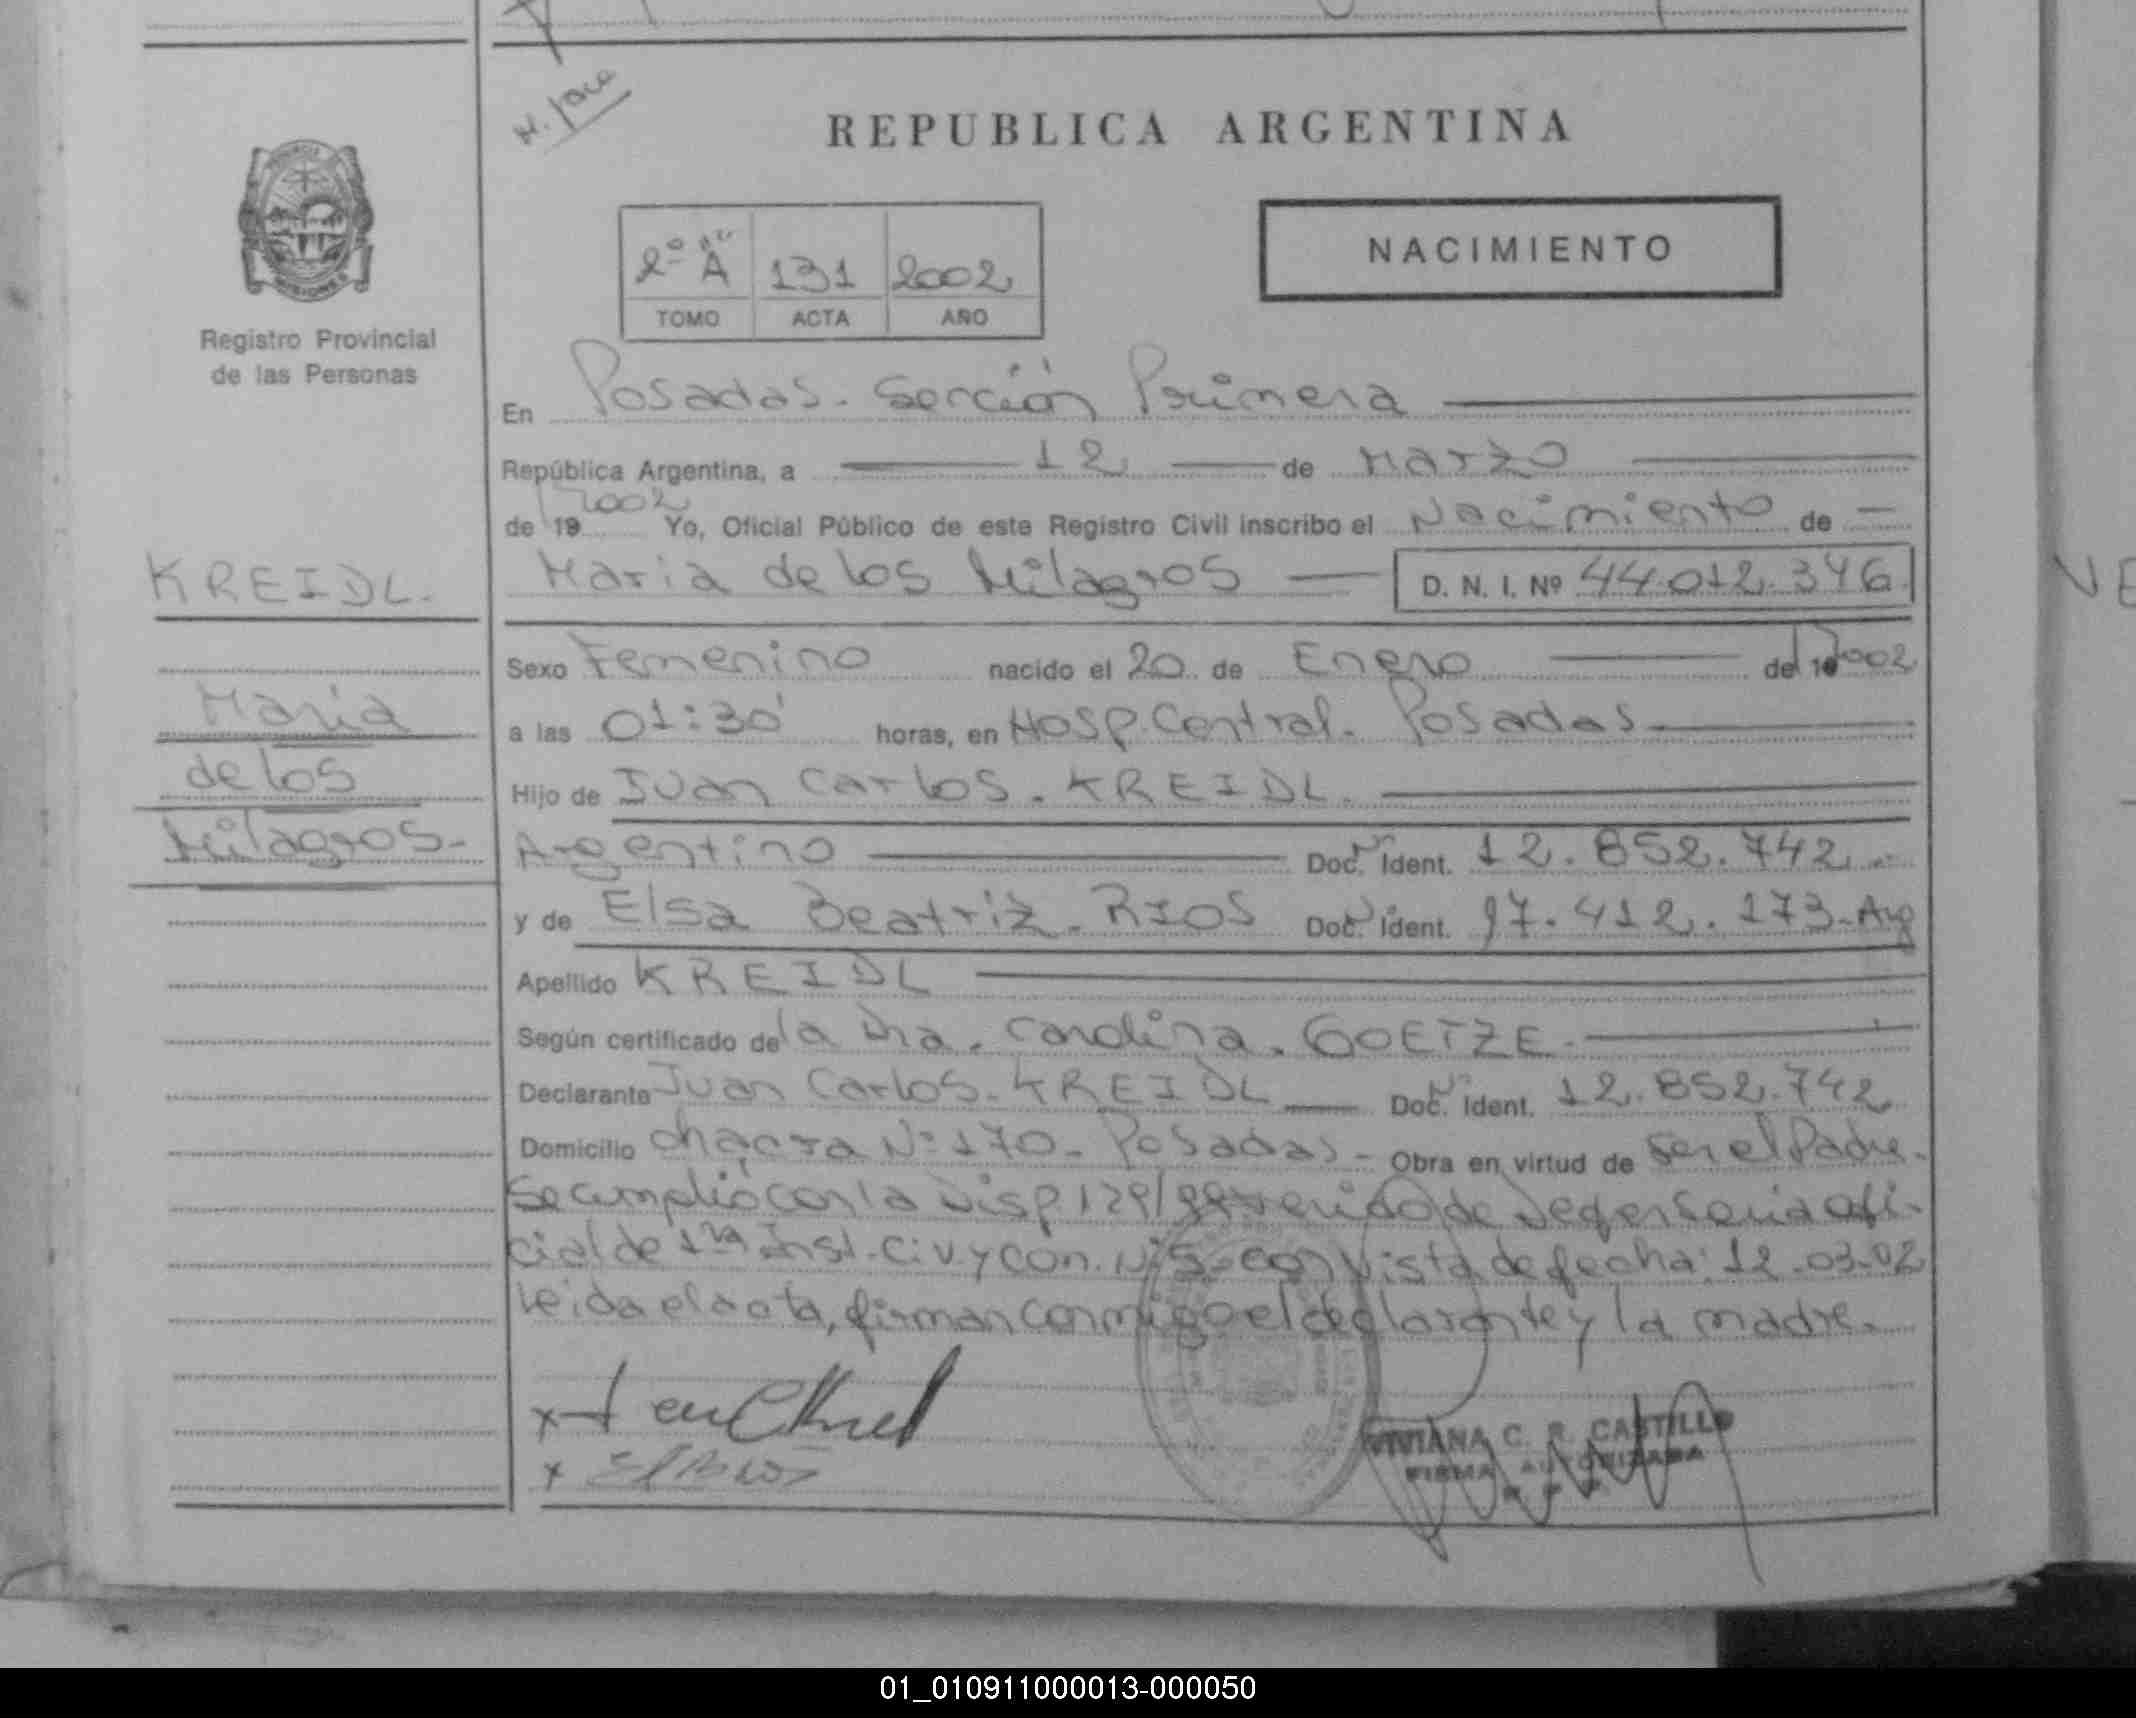 H. Jaco
REPUBLICA ARGENTINA
NACIMIENTO
2º "A" 131 2002
TOMO ACTA AÑO
Registro Provincial
de las Personas
En Posadas. Sección Primera
República Argentina, a 12 de Marzo
de 19 2002 Yo, Oficial Público de este Registro Civil inscribo el Nacimiento de
KREIDL.
Maria de los Milagros D. N. I. Nº 44.012.346.
Sexo Femenino nacido el 20 de Enero de 19 2002
Maria
de los
Milagros-
a las 01:30' horas, en Hosp. Central. Posadas
Hijo de Juan Carlos. KREIDL.
Argentino Doc. Ident. 12.852.742
y de Elsa Beatriz. RIOS Doc. Ident. 17.412.173-Arg
Apellido KREIDL
Según certificado de la Dra. Carolina. GOETZE.
Declarante Juan Carlos. KREIDL Doc. Ident. 12.852.742
Domicilio chacra Nº 170- Posadas- Obra en virtud de ser el Padre.
Se cumplió con la Disp 129/99 de Defensoria ofi-
cial de 1ra Inst. Civ. y Con. Nº 5- con vista de fecha: 12-03-02
Leida el acta, firman conmigo el declarante y la madre.
VIVIANA C. R. CASTILLO
FIRMA AUTORIZADA
01_010911000013-000050